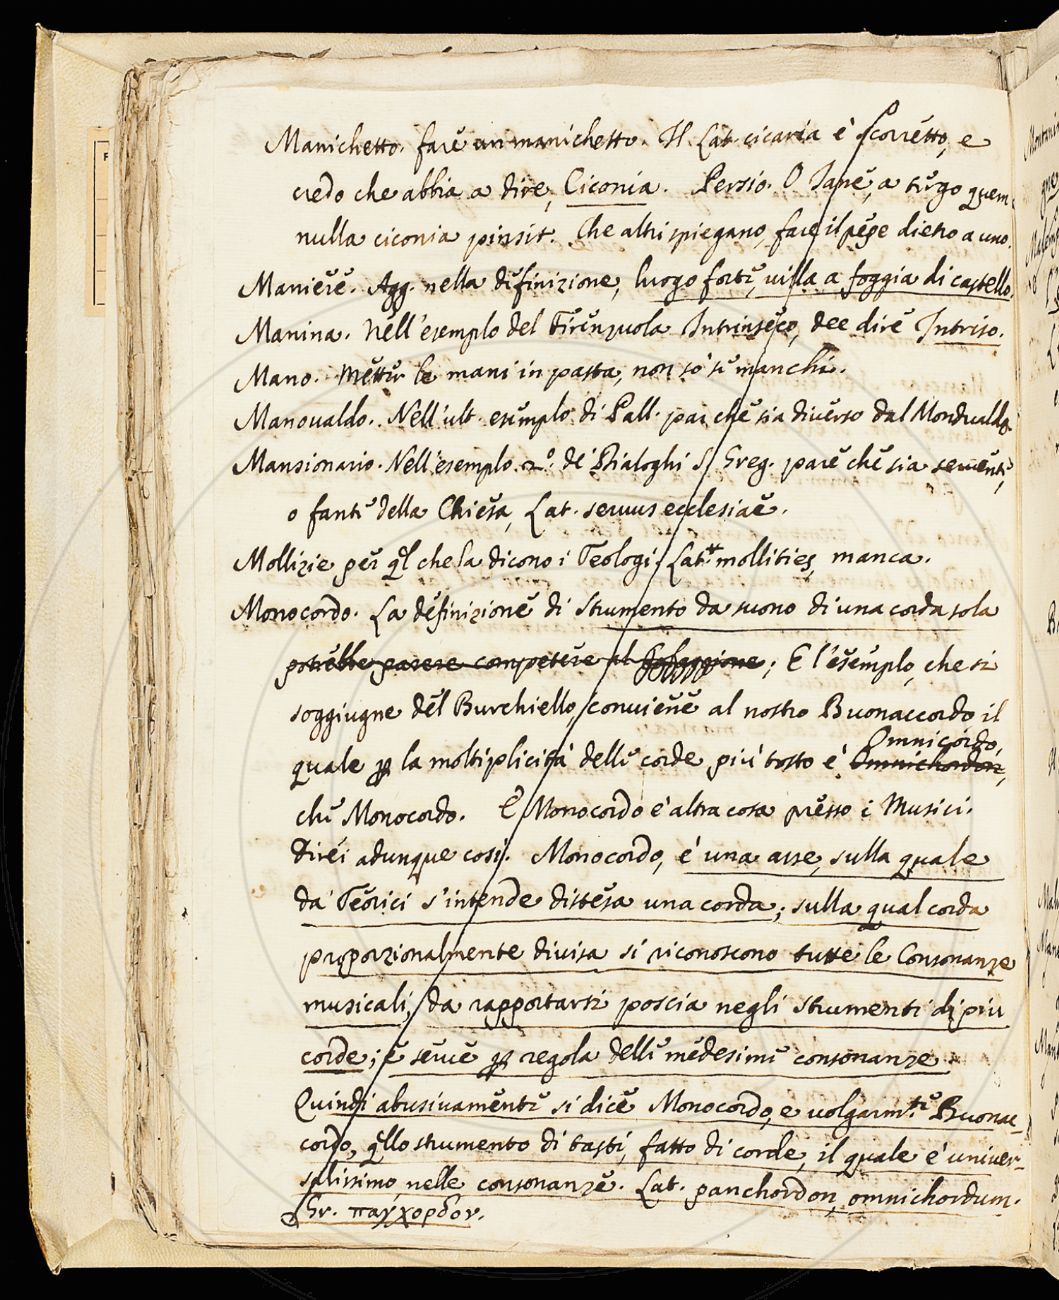 Manichetto. fare un manichetto. Il Lat. cicaria è scorretto, e
credo che abbia a dire, Ciconia. Persio. O Jane, a tergo quem
nulla ciconia pinsit. Che altri spiegano, fare il pepe dietro a uno.
Maniere. Agg. nella difinizione, luogo forte, villa a foggia di castello.
Manina. Nell'esemplo del Firenzuola Intrinseco, dee dire Intriso.
Mano. Mettere le mani in pasta, non so se manchi.
Manovaldo. Nell'ult. esemplo di Pall. par che sia diverso dal Mondualdo.
Mansionario. Nell'esemplo 2º. de' Dialoghi S. Greg. pare che sia servente,
o fante della Chiesa, Lat. servus ecclesiae.
Mollizie per ql che la dicono i Teologi, Latte mollities, manca.
Monocordo. La definizione di strumento da suono di una corda sola
potrebbe parere competere al ; E l'esemplo, che si
soggiugne del Burchiello, conviene al nostro Buonaccordo il
Omnicordo,
quale p la moltiplicità delle corde più tosto è Omnichordon,
che Monocordo. E Monocordo è altra cosa presso i Musici.
Direi adunque così. Monocordo, è una asse, sulla quale
da' Teorici s'intende distesa una corda; sulla qual corda
proporzionalmente divisa si riconoscono tutte le Consonanze
musicali, da rapportarsi poscia negli strumenti di più
corde; e serve p regola delle medesime consonanze.
Quindi abusivamente si dice Monocordo, e volgarmte Buonac-
cordo, qllo strumento di tasti, fatto di corde, il quale è univer-
salissimo nelle consonanze. Lat. panchordon, omnichordum.
Gr. παγχορδον.